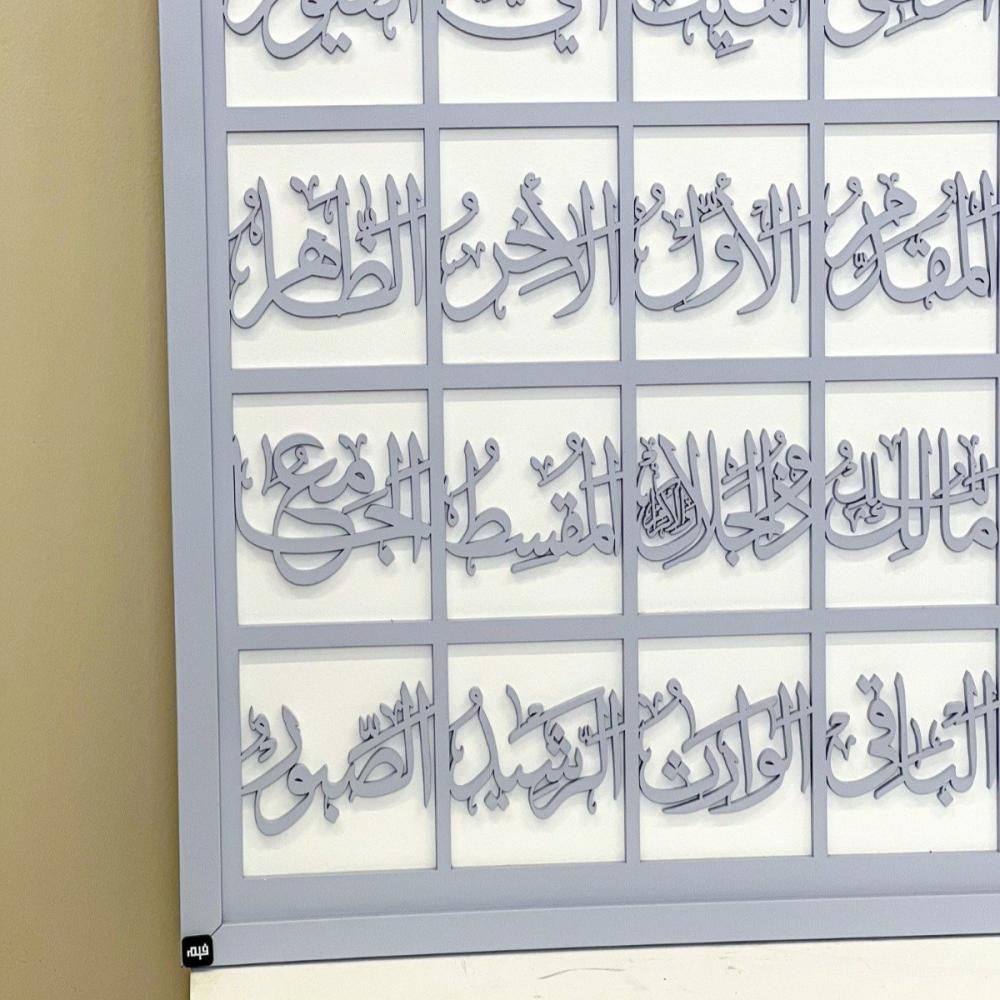 الْمُقَدِّمُ الْأَوَّلُ الْأَخِرُ الظَّاهِرُ
مَالِكُ الْمُلْكِ ذُو الْجَلَالِ وَالْإِكْرَامِ الْمُقْسِطُ الْجَامِعُ
الْبَاقِي الْوَارِثُ الرَّشِيدُ الصَّبُورُ